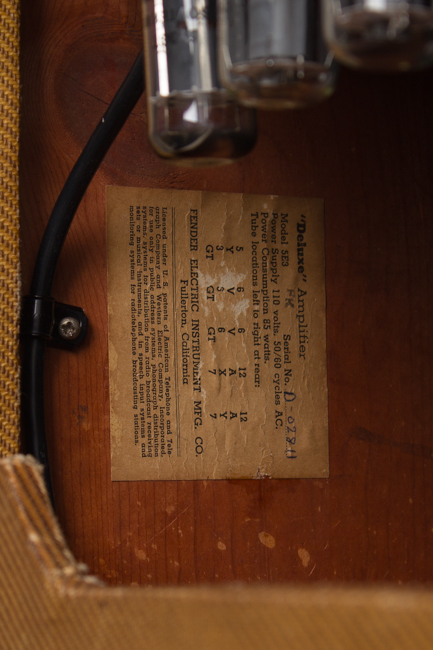 "Deluxe" Amplifier
Model 5E3 FK Serial No.
Power Supply 110 volts, 50/60 cycles AC.
Power Consumption 80 watts.
Tube locations left to right at rear:
5 6 6 12 12
Y V V A A
3 6 6 X Y
GT GT GT 7 7
FENDER ELECTRIC INSTRUMENT MFG. CO.
Fullerton, California
Licensed under U. S. patents of American Telephone and Tele-
graph Company and Western Electric Company, Incorporated,
for use only in public address systems, phonograph distribution
systems, systems for distribution from radio broadcast receiving
sets or musical instruments, and in speech input systems and
monitoring systems for radiotelephone broadcasting stations.